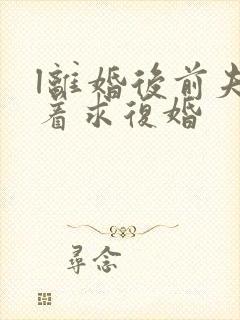 離婚後前夫
着求復婚
尋念